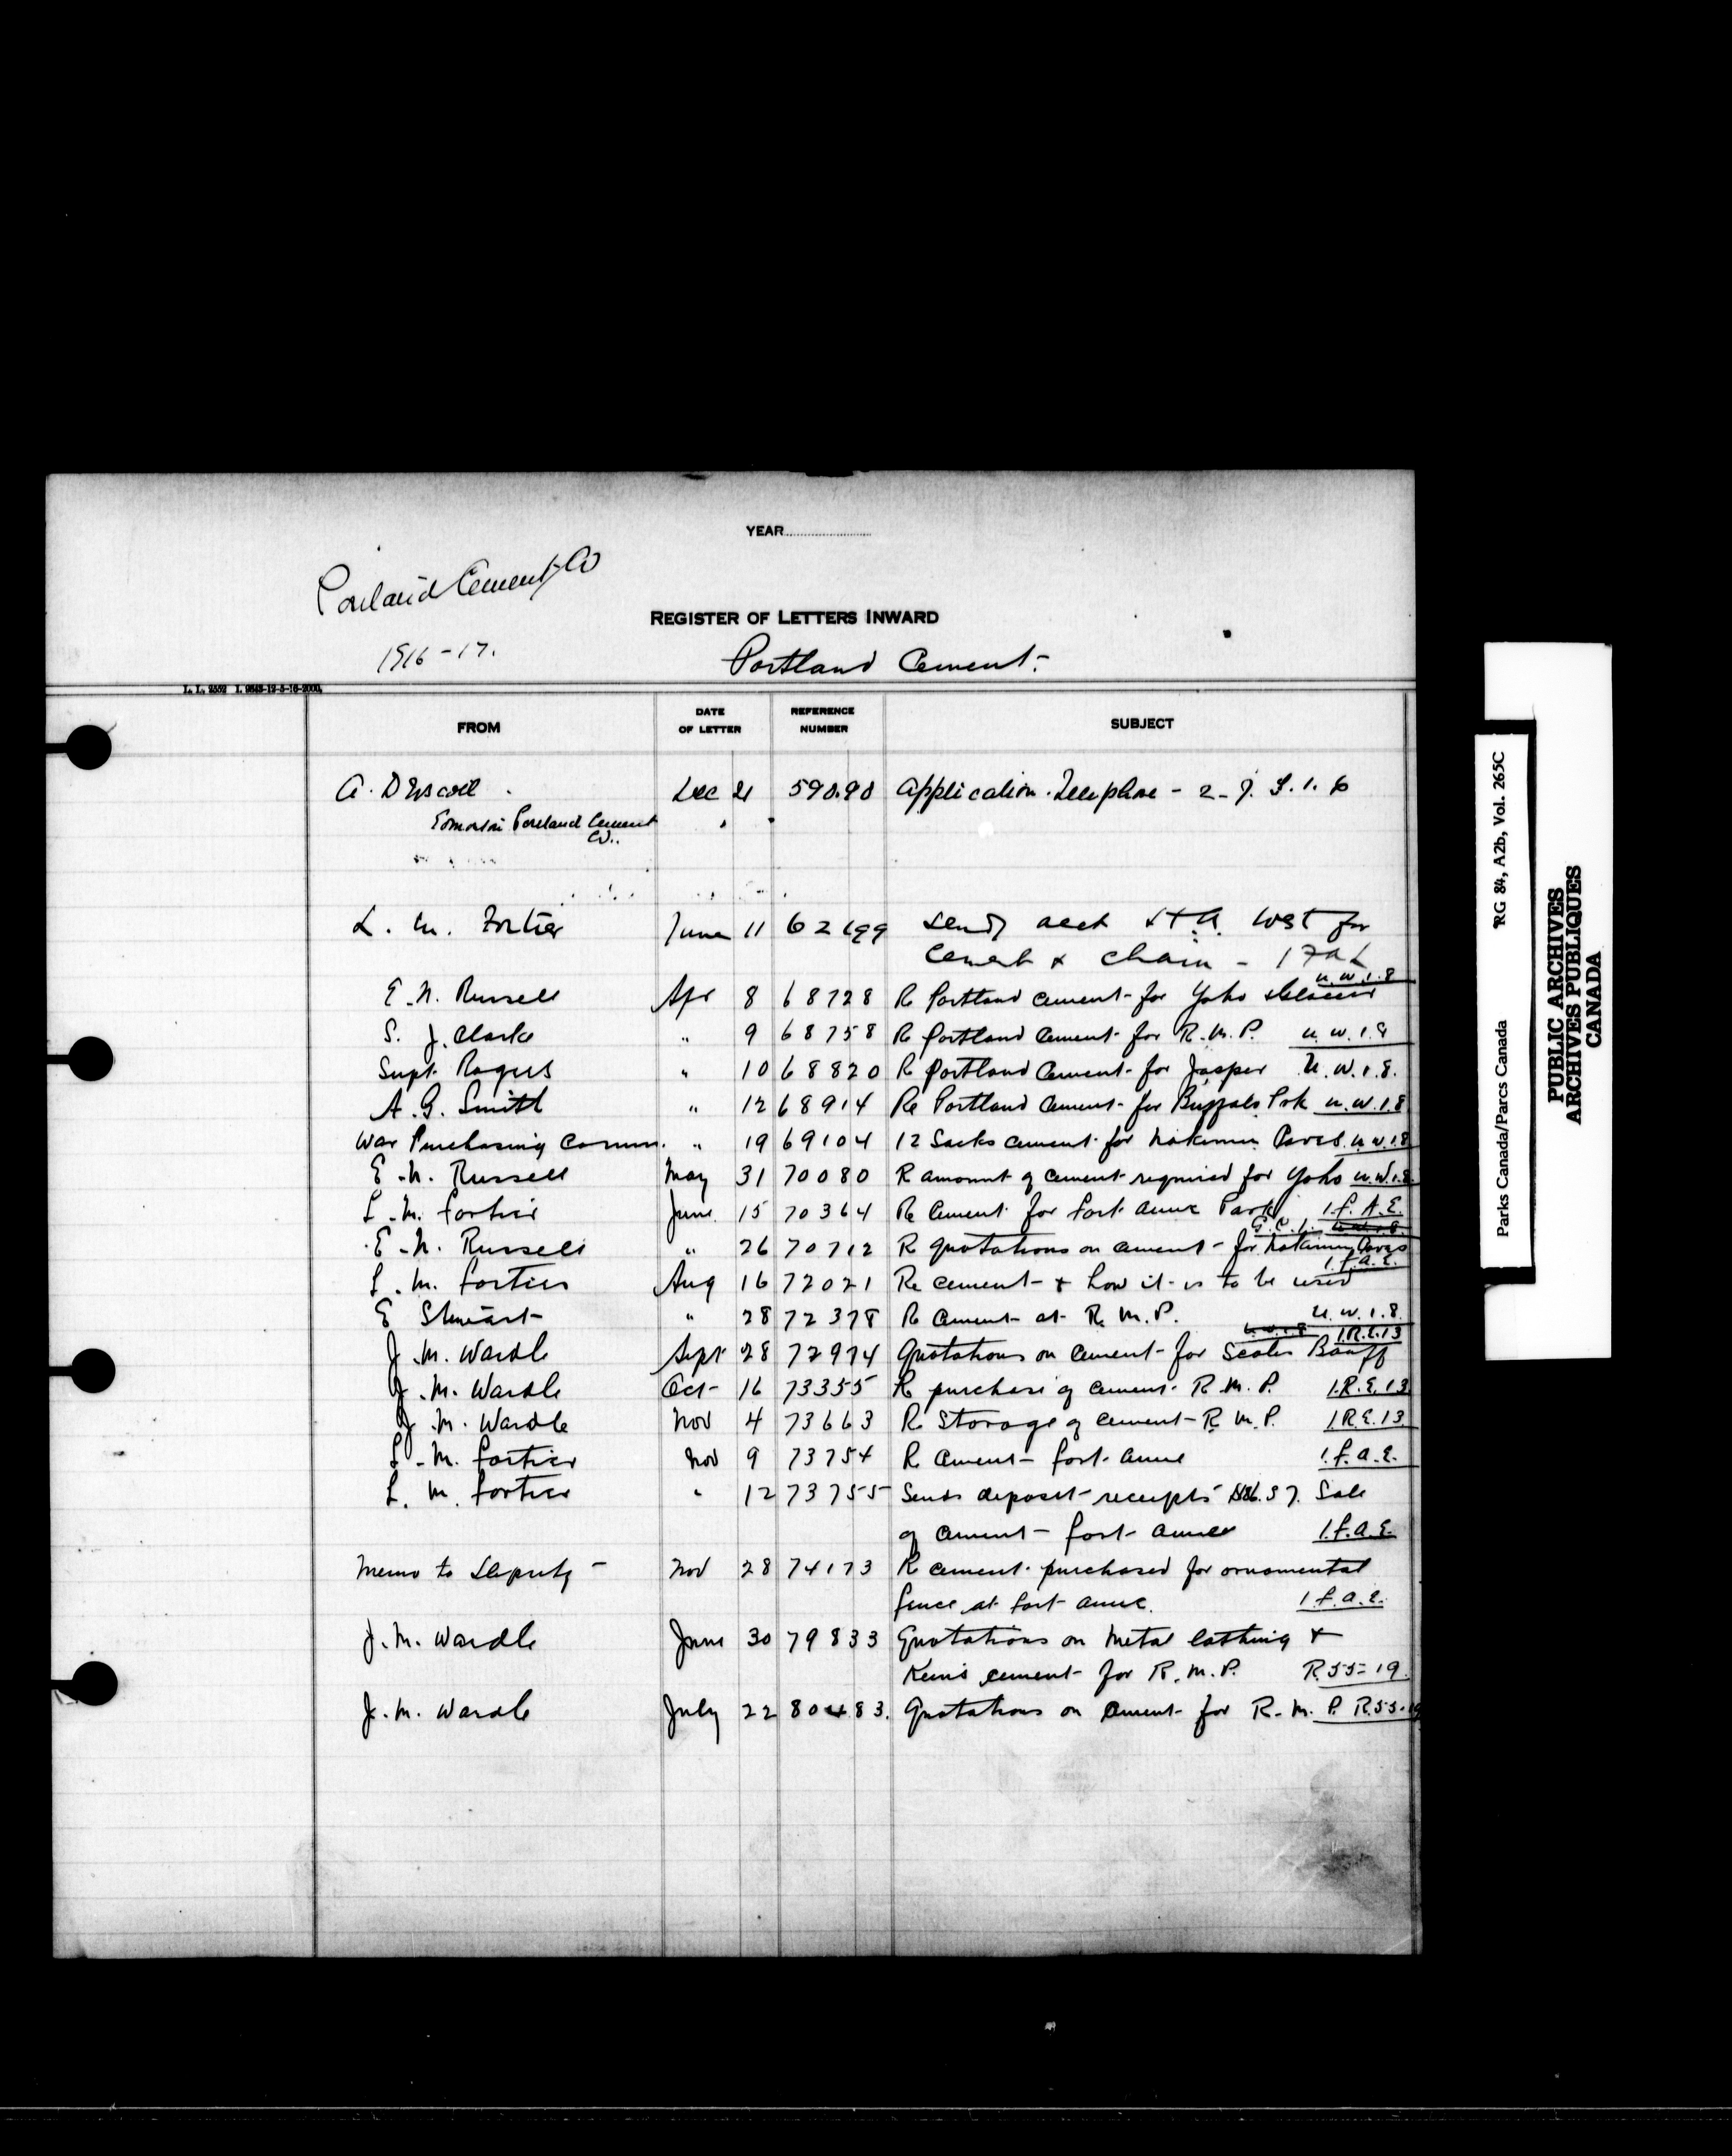 YEAR
Portland Cement Co
REGISTER OF LETTERS INWARD
1916-17.
Portland Cement.
FROM DATE OF LETTER REFERENCE NUMBER SUBJECT
A. Driscoll Dec 21 59090 Application Telephone - 2-J.S.1.6
Edmonton Portland Cement
Co..
L. M. Fortier June 11 62199 Sends acct West for
Cement & chain -
U.W.1.8
E. N. Russell Apr 8 68728 R Portland cement for Yoho
S. J. Clarke " 9 68758 Re Portland Cement for R.M.P. U.W.1.8
Supt. Rogers " 10 68820 R Portland Cement for Jasper U.W.1.8.
A. G. Smith " 12 68914 Re Portland Cement for Buffalo Prk U.W.1.8
War Purchasing Comm. " 19 69104 12 Sacks cement for Nakimu Caves U.W.1.8
E. N. Russell May 31 70080 R amount of cement required for Yoho U.W.1.8.
L. M. Fortier June 15 70364 Re Cement for Fort Anne Park 1.F.A.E.
G.C.1. U.W.1.8.
E. N. Russell " 26 70712 R quotations on cement - for Nakimu Caves
1.F.A.E.
L. M. Fortier Aug 16 72021 Re cement - & how it is to be used
E Stewart " 28 72378 R Cement at R.M.P. U.W.1.8.
U.W.1.8 1.R.E.13
J. M. Wardle Sept 28 72974 Quotations on cement for Scales Banff
J. M. Wardle Oct 16 73355 R purchase of cement R.M.P. 1.R.E.13
J. M. Wardle Nov 4 73663 R Storage of cement - R.M.P. 1.R.E.13
L. M. Fortier Nov 9 73754 R Cement - Fort Anne 1.F.A.E.
L. M. Fortier " 12 73755 Sends deposit receipts Sale
of Cement - Fort Anne 1.F.A.E.
Memo to Deputy - Nov 28 74173 R cement purchased for ornamental
fence at Fort Anne. 1.F.A.E.
J. M. Wardle June 30 79833 Quotations on Metal lathing &
Keen's cement for R.M.P. R.55-19.
J. M. Wardle July 22 80483. Quotations on Cement for R.M.P. R.55-19
L. L. 2552
Parks Canada/Parcs Canada RG 84, A2b, Vol. 265C
PUBLIC ARCHIVES
ARCHIVES PUBLIQUES
CANADA